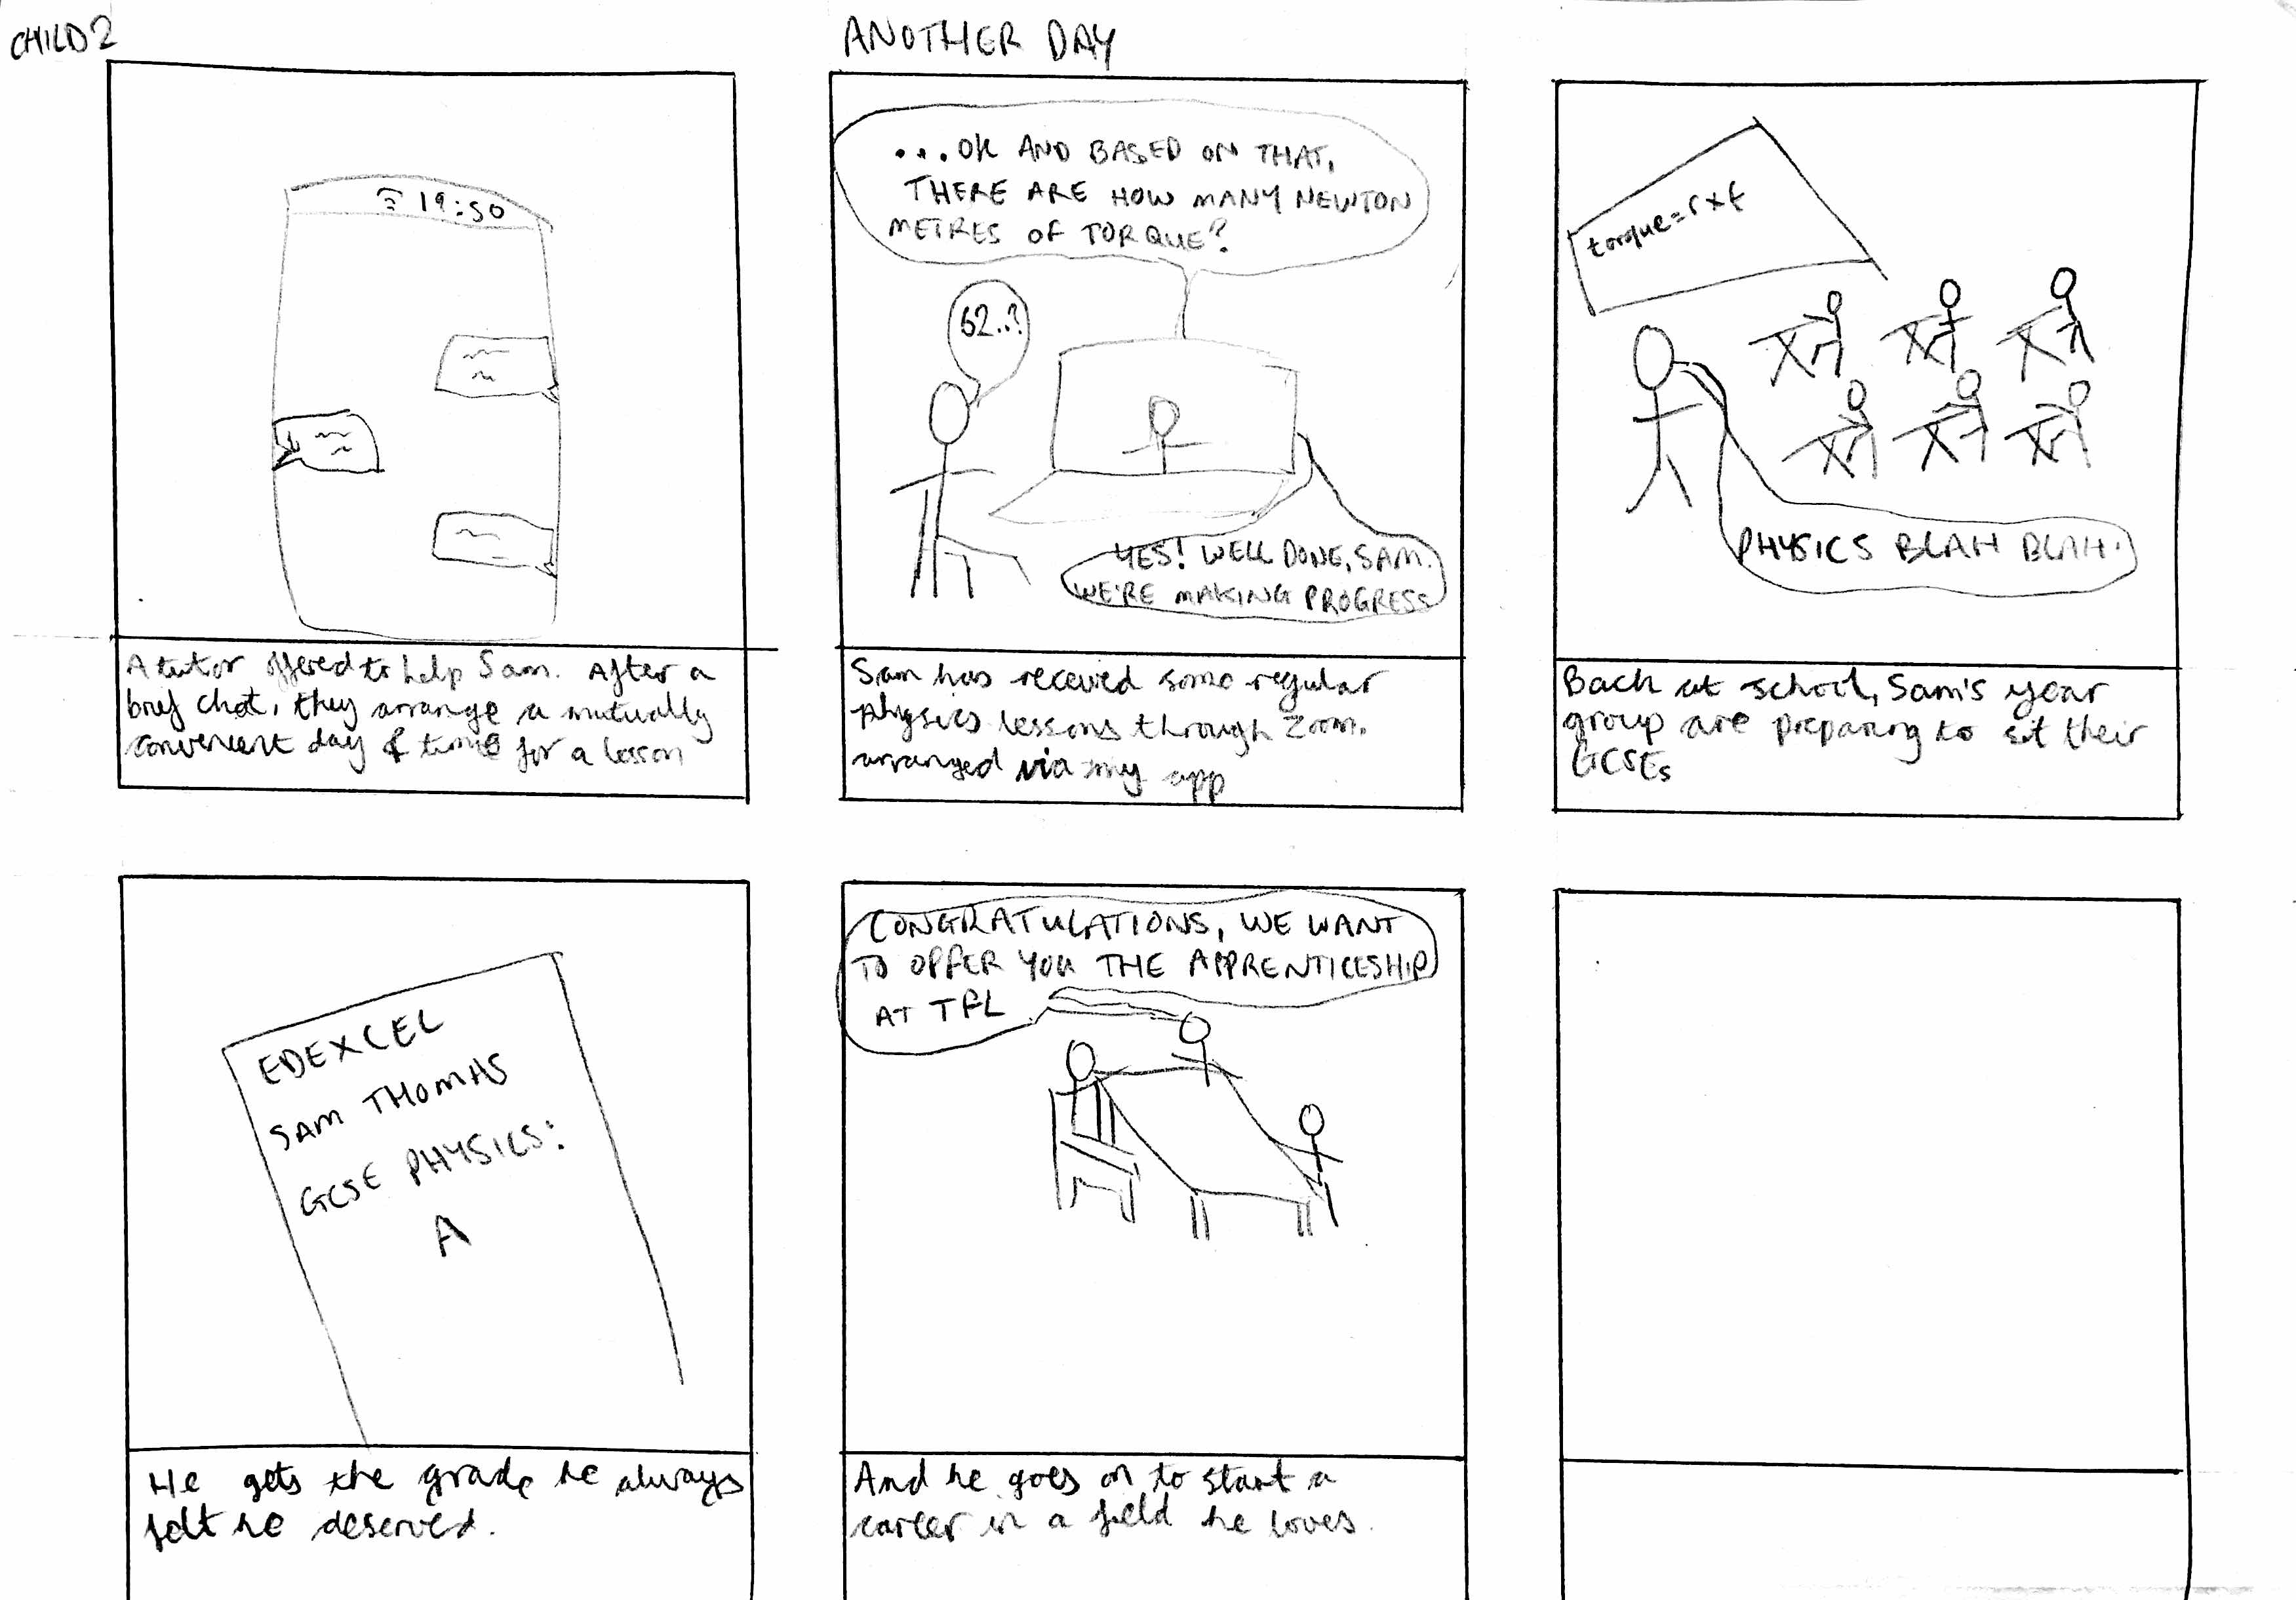 CHILD 2
ANOTHER DAY
19:50
A tutor offered to help Sam. After a
brief chat, they arrange a mutually
convenient day & time for a lesson
...OK AND BASED ON THAT,
THERE ARE HOW MANY NEWTON
METRES OF TORQUE?
62..?
YES! WELL DONE, SAM.
WE'RE MAKING PROGRESS
Sam has received some regular
physics lessons through Zoom.
arranged via my app
torque=r×f
PHYSICS BLAH BLAH.
Back at school, Sam's year
group are preparing to sit their
GCSEs
EDEXCEL
SAM THOMAS
GCSE PHYSICS:
A
He gets the grade he always
felt he deserved.
CONGRATULATIONS, WE WANT
TO OFFER YOU THE APPRENTICESHIP
AT TFL
And he goes on to start a
career in a field he loves.